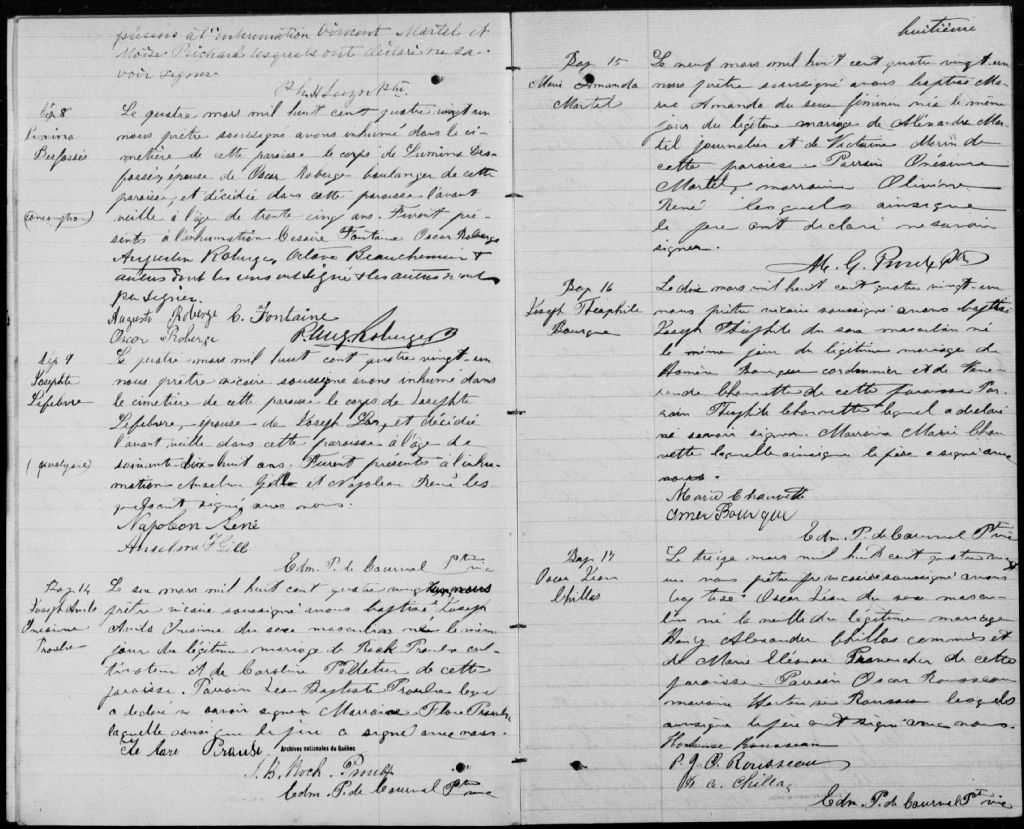 présens à l'inhumation Vincent Martel et
Moïse Richard lesquels ont déclaré ne sa-
voir signer
Ptre.
Sép 8
Lumina
Desfossés
(consomption)
Le quatre mars mil huit cent quatre vingt un
nous prêtre soussigné avons inhumé dans le ci-
metière de cette paroisse le corps de Lumina Des-
fossés, épouse de Oscar Roberge boulanger de cette
paroisse, et décédée dans cette paroisse l'avant
veille à l'âge de trente cinq ans. Furent pré-
sents à l'inhumation Cesaire Fontaine Oscar Roberge
Augustin Roberge, Octave Beauchemin &
autres dont les uns ont signé & les autres n'ont
pu signer.
Auguste Roberge C. Fontaine
Oscar Roberge
P. Aug. Roberge
Sép 9
Josephte
Lefebvre
(paralysie)
Le quatre mars mil huit cent quatre vingt-un
nous prêtre vicaire soussigné avons inhumé dans
le cimetière de cette paroisse le corps de Josephte
Lefebvre, épouse de Joseph et décédée
l'avant veille dans cette paroisse à l'âge de
soixante-dix-huit ans. Furent présents à l'inhu-
mation Anselme Gill et Napoléon René les
quels ont signé avec nous.
Napoleon René
Anselme Gill
Edm. P. de Courval Ptre vic
Bap 14
Joseph Avila
Onésime
Proulx
Le six mars mil huit cent quatre vingt un nous
prêtre vicaire soussigné avons baptisé Joseph
Avila Onesime du sexe masculin né le même
jour du légitime mariage de Rock Proulx cul-
tivateur et de Caroline Pelletier de cette
paroisse. Parrain Jean Baptiste Proulx lequel
a déclaré savoir signer Marraine Flore Proulx
laquelle ainsi que le père a signé avec nous.
Archives nationales du Québec
J. B. Rock Proulx
Edm. P. de Courval Ptre vic
huitième
Bap 15
Marie Amanda
Martel
Le neuf mars mil huit cent quatre vingt un
nous prêtre soussigné avons baptisé Ma-
rie Amanda du sexe féminin née le même
jour du légitime mariage de Alexandre Mar-
tel journalier et de Victorine Morin de
cette paroisse. Parrain Onésime
Martel, marraine Olivine
René lesquels ainsi que
le père ont déclaré ne savoir
signer.
Bap 16
Joseph Théophile
Bourque
Le dix mars mil huit cent quatre vingt un
nous prêtre vicaire soussigné avons baptisé
Joseph Théophile du sexe masculin né
le même jour du légitime mariage de
Homère Bourque cordonnier et de Véné-
rande Charrette de cette paroisse Par-
rain Théophile Charrette lequel a déclaré
ne savoir signer. Marraine Marie Char-
rette laquelle ainsi que le père a signé avec
nous.
Marie Charette
Omer Bourque
Edm. P. de Courval Ptre vic
Bap 17
Oscar Léon
Chillas
Le treize mars mil huit cent quatre vingt
un nous prêtre vicaire soussigné avons
baptisé Oscar Léon du sexe mascu-
lin né la veille du légitime mariage
Henry Alexander Chillas commis et
de Marie Eléonore Provencher de cette
paroisse. Parrain Oscar Rousseau
marraine Hortense Rousseau lesquels
ainsi que le père ont signé avec nous.
Hortense Rousseau
P. J. O. Rousseau
H. A. Chillas
Edm. P. de Courval Ptre vic